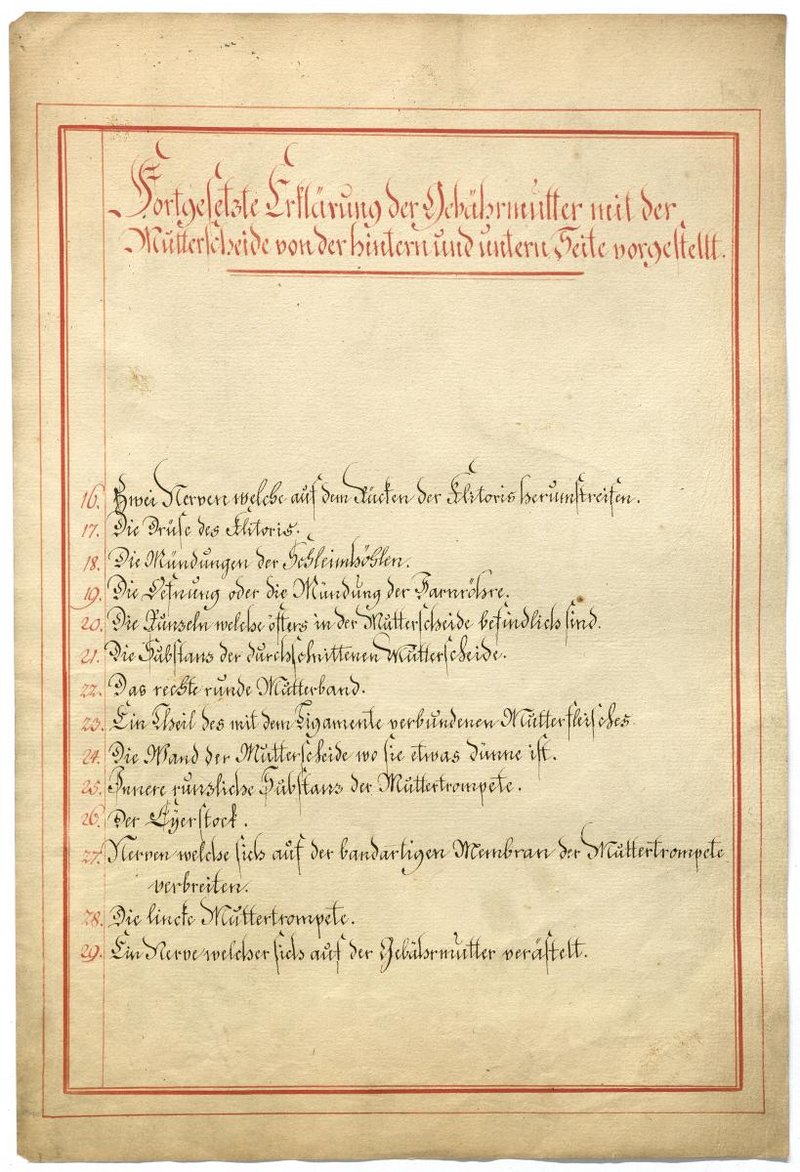 Fortgesetzte Erklärung der Gebährmutter mit der
Mutterscheide von der hintern und untern Seite vorgestellt.
16. Zwei Nerven welche auf dem Rücken der Klitoris herumstreifen.
17. Die Drüse des Klitoris.
18. Die Mündungen der Schleimhöhlen.
19. Die Oefnung oder die Mündung der Harnröhre.
20. Die Runzeln welche öfters in der Mutterscheide befindlich sind.
21. Die Substanz der durchschnittenen Mutterscheide.
22. Das rechte runde Mutterband.
23. Ein Theil des mit dem Ligamente verbundenen Mutterfleisches
24. Die Wand der Mutterscheide wo sie etwas dünne ist.
25. Innere runzliche Substanz der Muttertrompete.
26. Der Eÿerstock.
27. Nerven welche sich auf der bandartigen Membran der Muttertrompete
verbreiten.
28. Die lincke Muttertrompete.
29. Ein Nerve welcher sich auf der Gebährmutter verästelt.